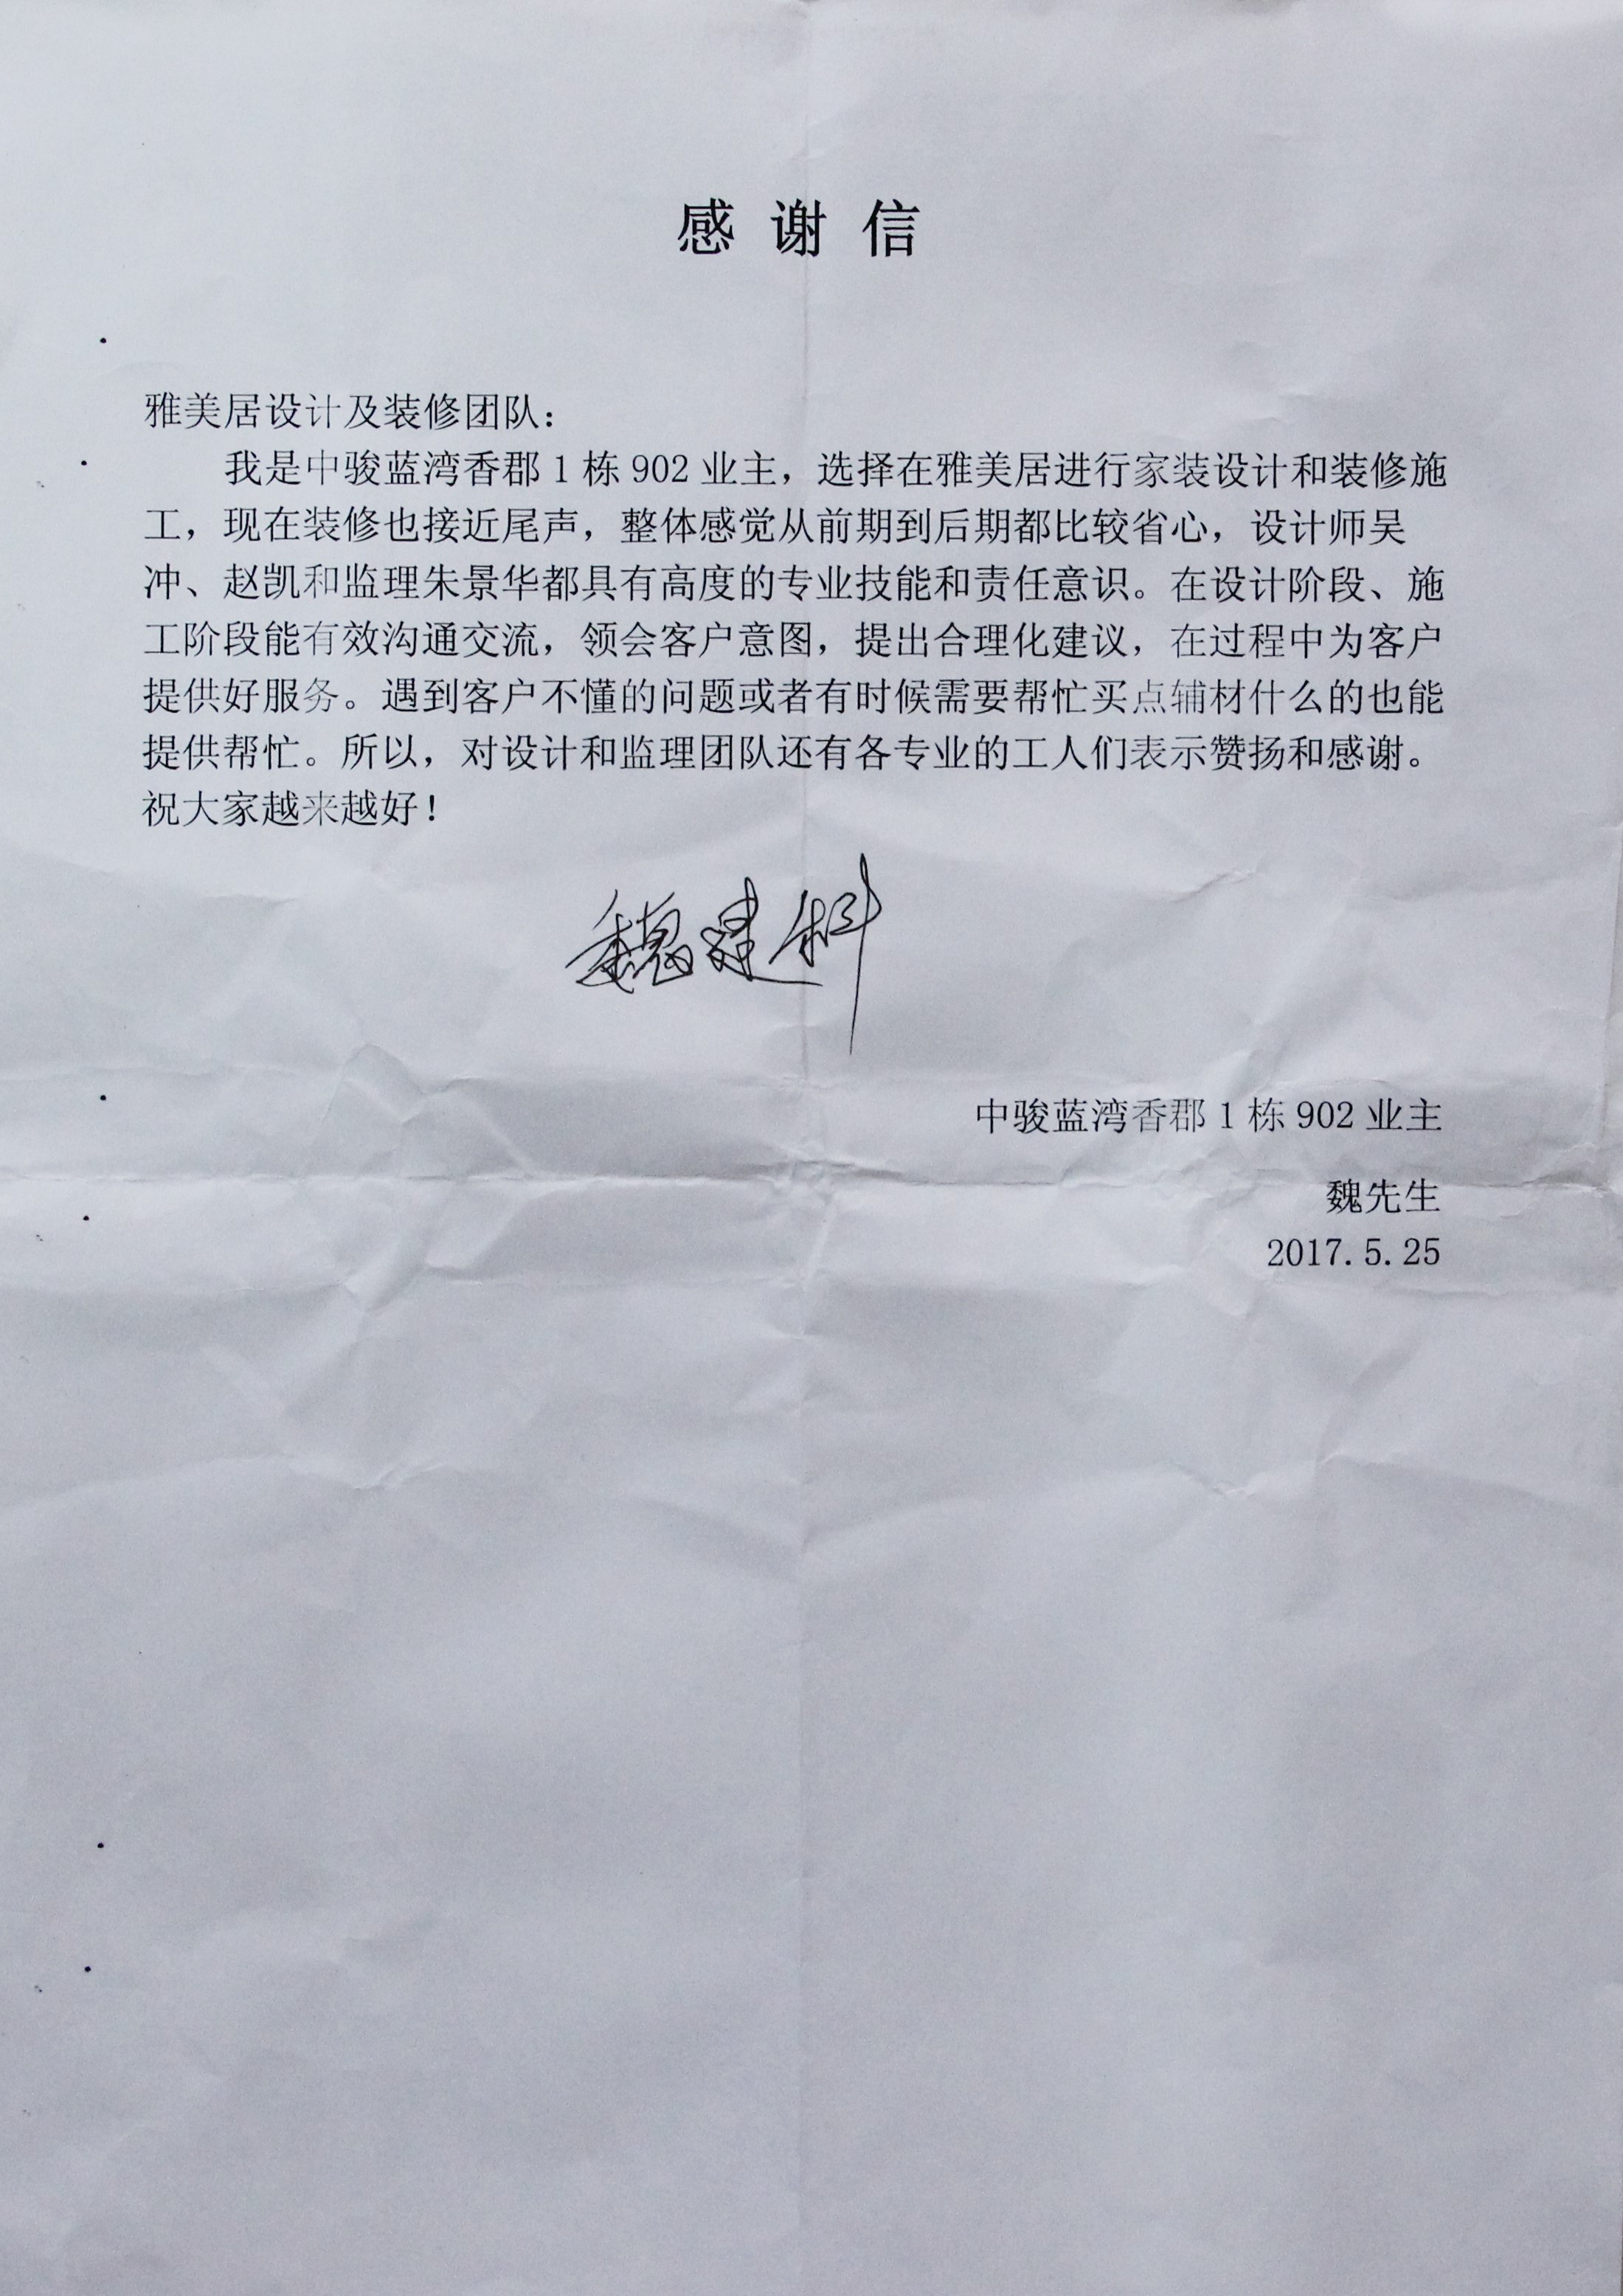 感谢信
雅美居设计及装修团队：
我是中骏蓝湾香郡1栋902业主，选择在雅美居进行家装设计和装修施
工，现在装修也接近尾声，整体感觉从前期到后期都比较省心，设计师吴
冲、赵凯和监理朱景华都具有高度的专业技能和责任意识。在设计阶段、施
工阶段能有效沟通交流，领会客户意图，提出合理化建议，在过程中为客户
提供好服务。遇到客户不懂的问题或者有时候需要帮忙买点辅材什么的也能
提供帮忙。所以，对设计和监理团队还有各专业的工人们表示赞扬和感谢。
祝大家越来越好！
魏建科
中骏蓝湾香郡1栋902业主
魏先生
2017.5.25